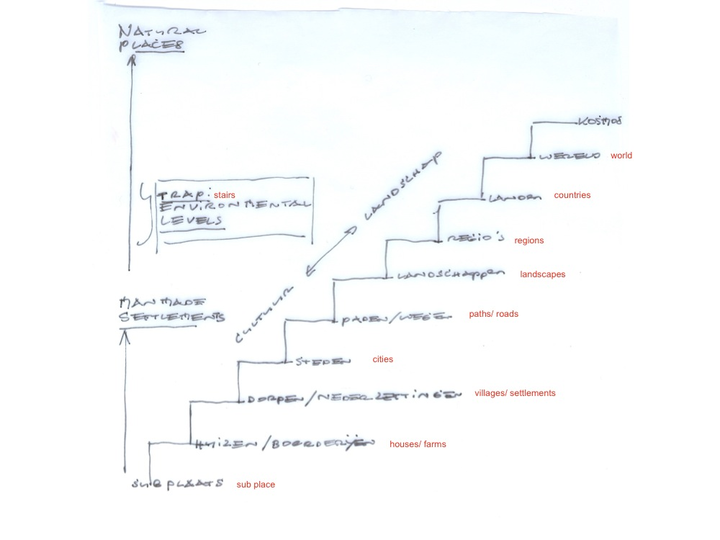 NATURAL
PLACES
KOSMOS
WERELD world
TRAP: stairs
ENVIRONMENTAL
LEVELS
LANDSCHAP
LANDEN countries
REGIO'S regions
LANDSCHAPPEN landscapes
CULTUUR
MANMADE
SETTLEMENTS
PADEN/WEGEN paths/ roads
STEDEN cities
DORPEN/NEDERZETTINGEN villages/ settlements
HUIZEN/BOERDERIJEN houses/ farms
SUB PLAATS sub place